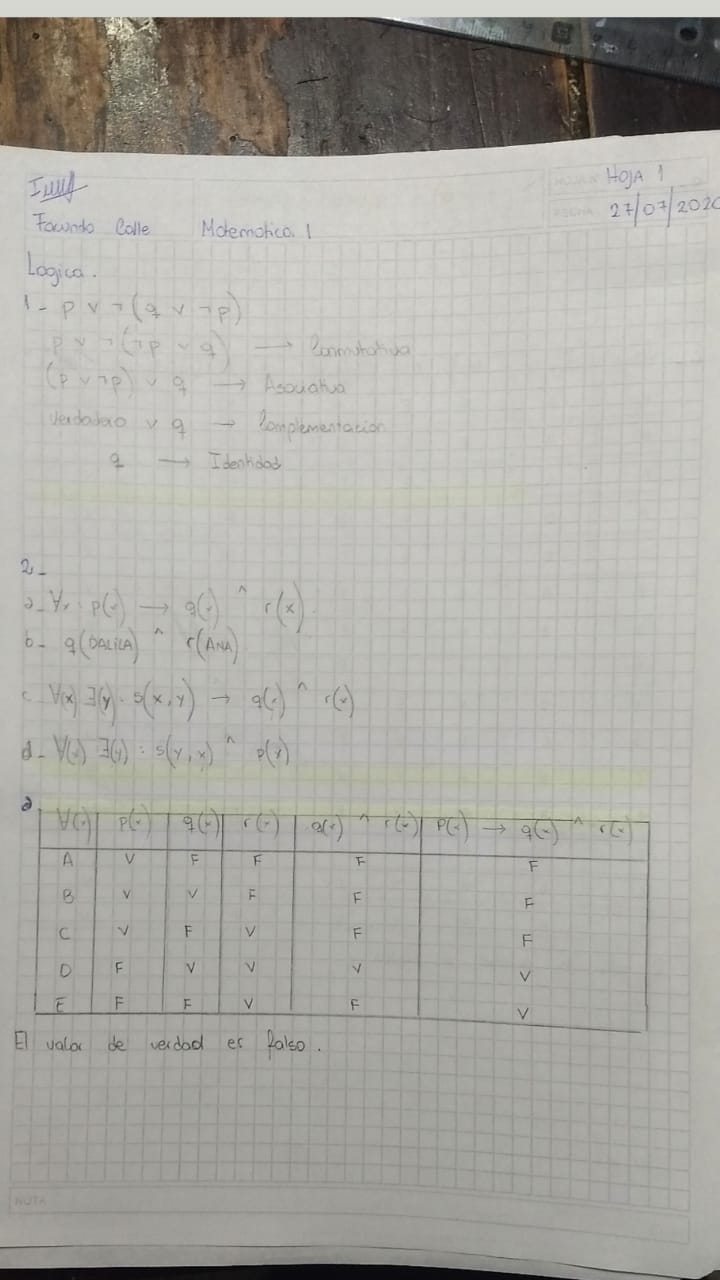 HOJA 1
27/07/2020
Facundo Calle Matematica 1
Logica.
1- p ∨ ¬(q ∨ ¬p)
p ∨ ¬(¬p ∨ q) → Conmutativa
(p ∨ ¬p) ∨ q → Asociativa
Verdadero ∨ q → Complementacion
q → Identidad
2_
a_ ∀x: p(x) → q(x) ^ r(x).
b- q(DALILA) ^ r(ANA)
c_ ∀(x) ∃(y). s(x,y) → q(x) ^ r(x)
d_ ∀(x) ∃(y): s(y,x) ^ p(y)
a
∀(x) p(x) q(x) r(x) q(x) ^ r(x) p(x) → q(x) ^ r(x)
A V F F F F
B V V F F F
C V F V F F
D F V V V V
E F F V F V
El valor de verdad es falso.
NOTA